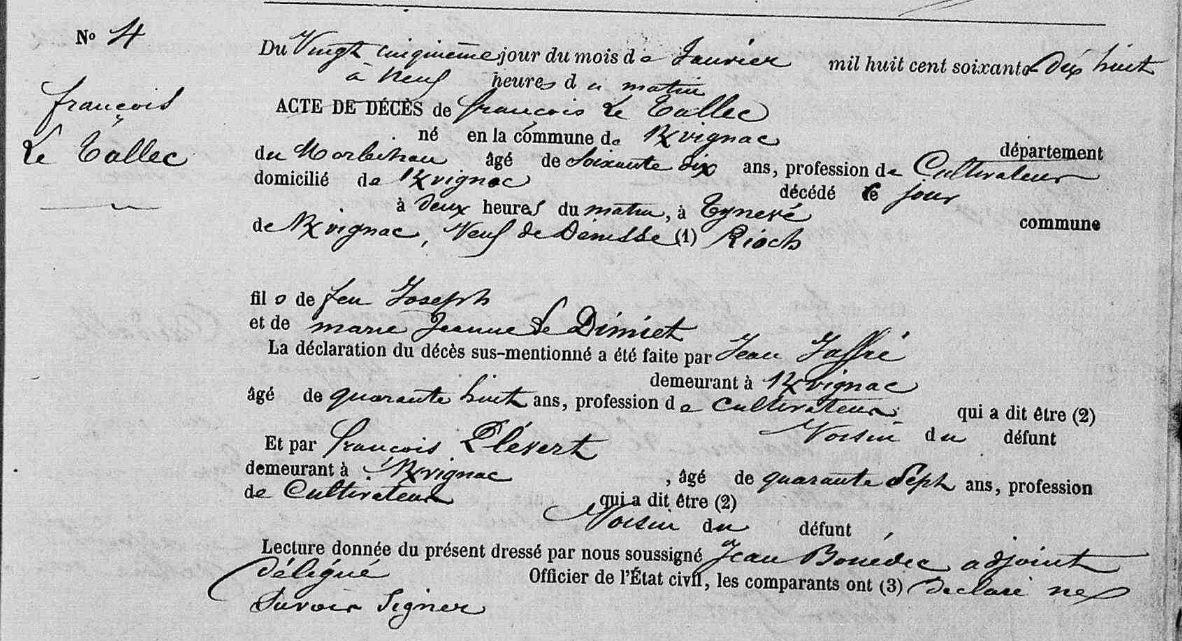 N° 4
françois
Le Tallec
Du Vingt cinquième jour du mois de Janvier mil huit cent soixante dix huit
à neuf heures du matin
ACTE DE DÉCÈS de françois Le Tallec
né en la commune de Kvignac département
du Morbihan âgé de soixante dix ans, profession de Cultivateur
domicilié de Kvignac décédé ce jour
à deux heures du matin, à Tynevé commune
de Kvignac, Veuf de Denisse (1) Rioch
fils de feu Joseph
et de marie Jeanne Le Dimiet
La déclaration du décès sus-mentionné a été faite par Jean Jaffré
demeurant à Kvignac
âgé de quarante huit ans, profession de Cultivateur qui a dit être (2)
Voisin du défunt
Et par françois Plévert
demeurant à Kvignac, âgé de quarante Séph ans, profession
de Cultivateur qui a dit être (2)
Voisin du défunt
Lecture donnée du présent dressé par nous soussigné Jean Bonédec adjoint
délégué Officier de l'État civil, les comparants ont (3) declaré nes
Savoir Signer